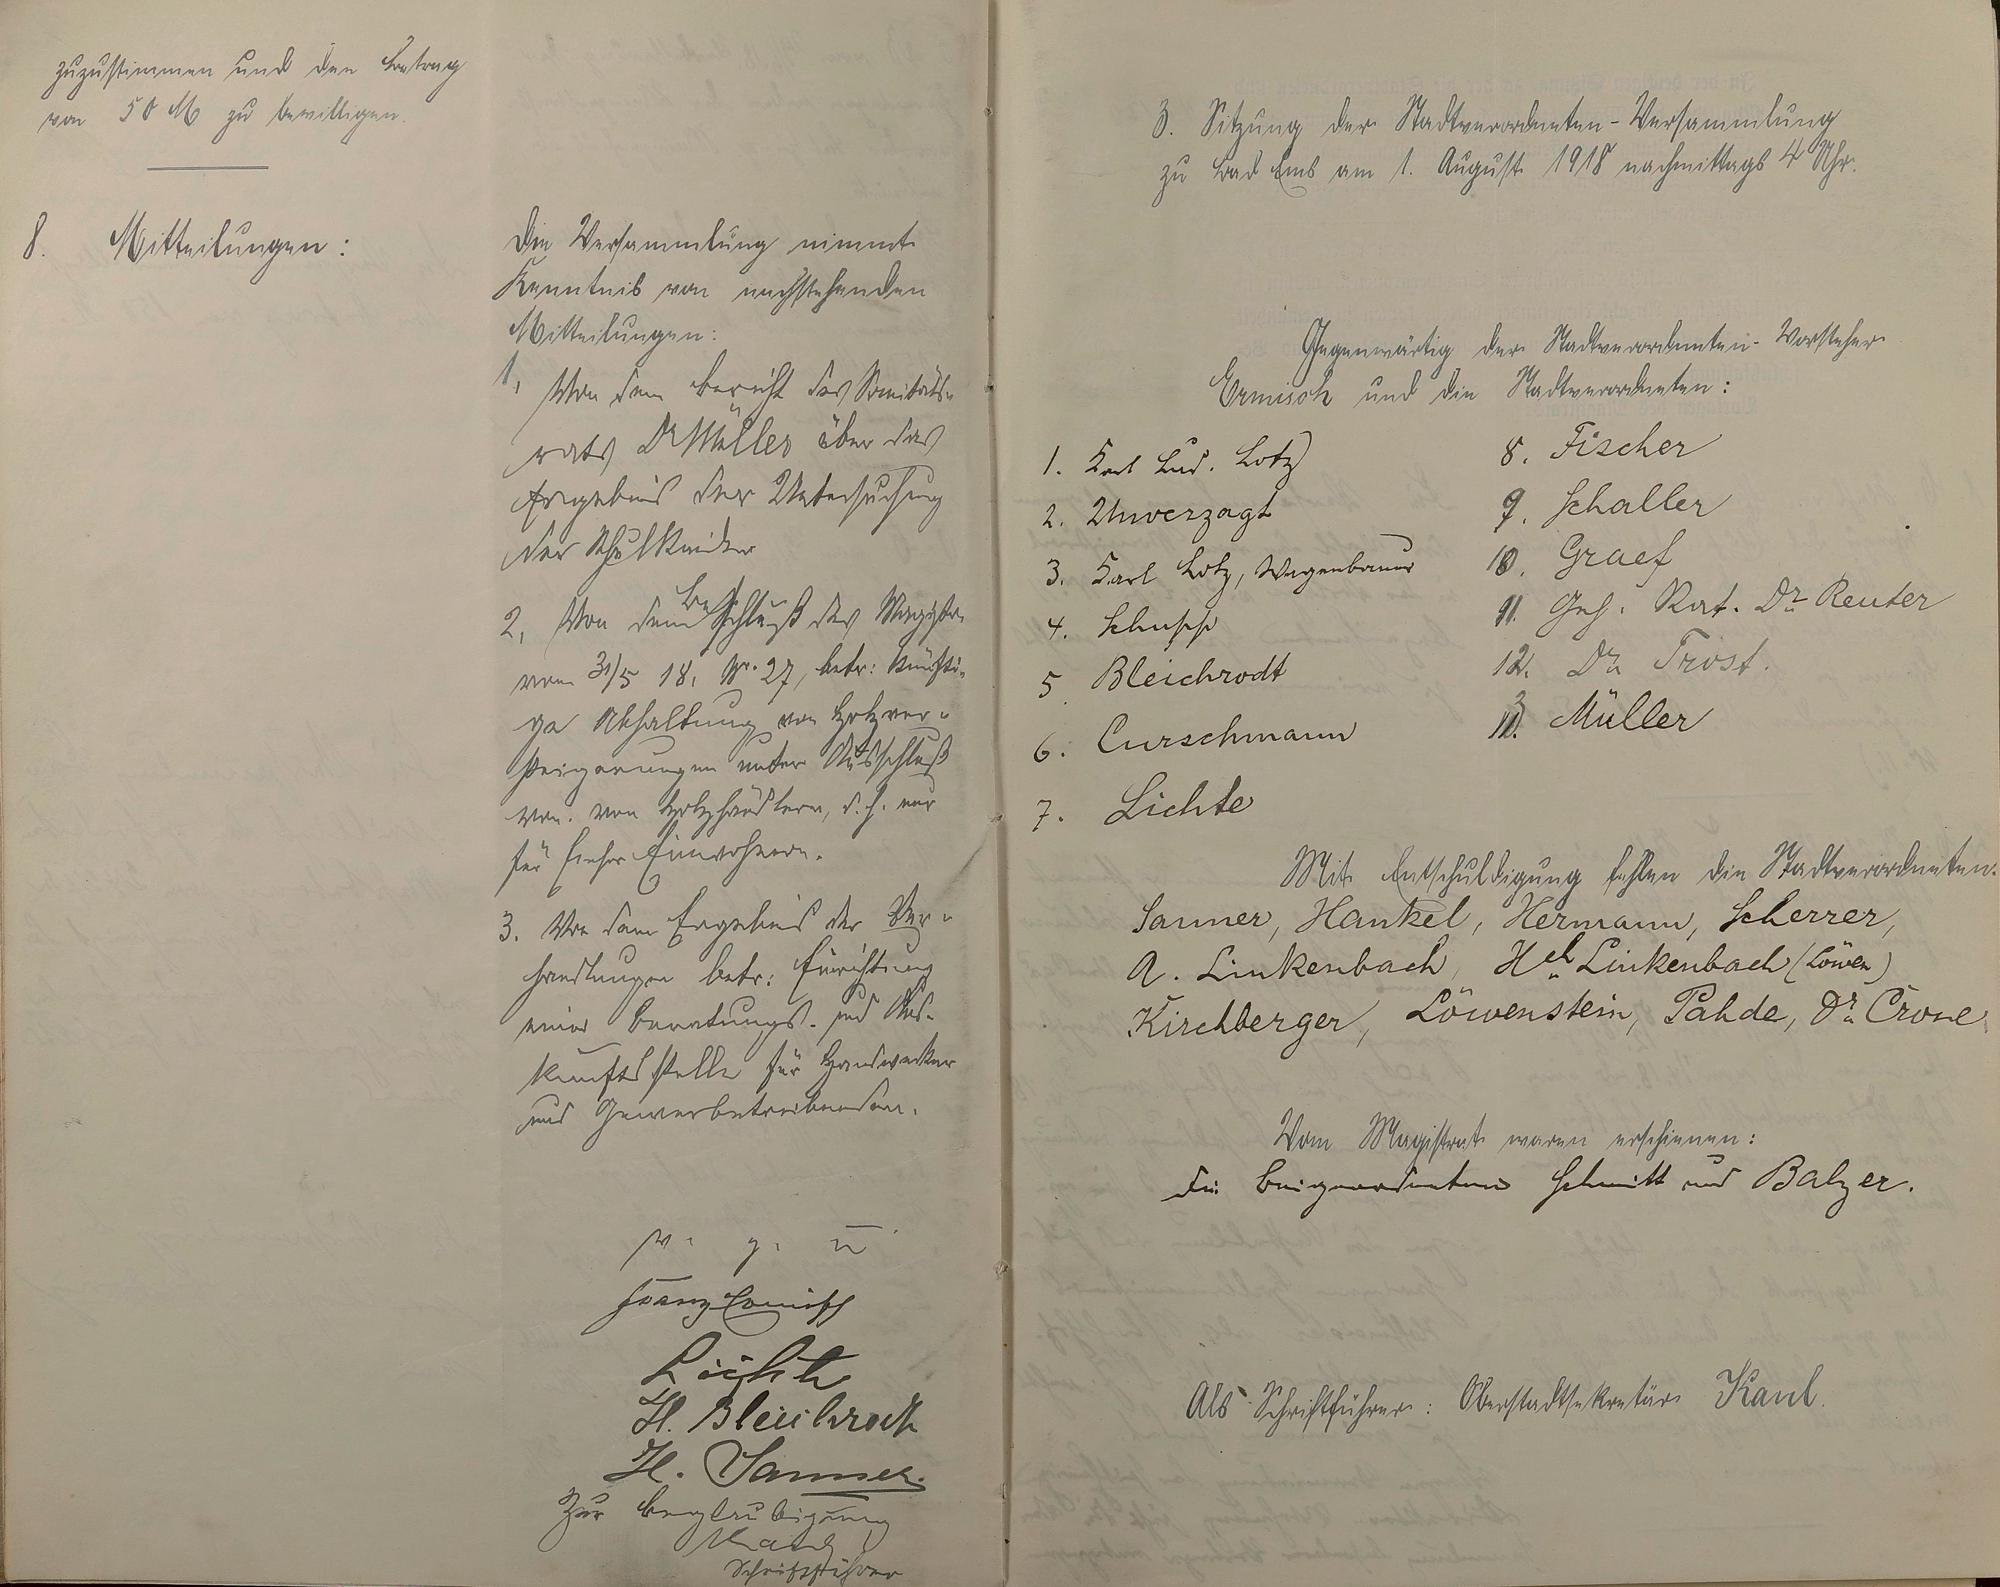 zuzustimmen und den Betrag
von 50 M zu bewilligen.
8. Mitteilungen:
Die Versammlung nimmt
Kenntnis von nachstehenden
Mitteilungen:
1, Von dem Bericht des Sanitäts-
rats Dr Müller über das
Ergebnis der Untersuchung
der Schulkinder
2, Von dem Beschluß des Magistr.
vom 31/5 18, Nr. 27, betr: künfti-
ge Abhaltung von Holzver-
steigerungen unter Ausschluß
von von Holzhändlern, d. h. nur
für hiesige Einwohner.
3. Von dem Ergebnis der Ver-
handlungen betr: Einrichtung
einer Beratungs- und Aus-
kunftsstelle für Handwerker
und Gewerbetreibenden.
v. g. u.
Franz Ermisch
Lichte
H. Bleichrodt
H. Sanner.
Zur Beglaubigung
Kaul
Schriftführer
3. Sitzung der Stadtverordneten-Versammlung
zu Bad Ems am 1. August 1918 nachmittags 4 Uhr.
Gegenwärtig der Stadtverordneten-Vorsteher
Ermisch und die Stadtverordneten:
1. Karl Lud. Lotz
2. Unverzagt
3. Karl Lotz, Wagenbauer
4. Schupp
5 Bleichrodt
6. Curschmann
7. Lichte
8. Fischer
9. Schaller
10. Graef
11. Geh. Rat. Dr. Reuter
12. Dr. Trost.
13. Müller
Mit Entschuldigung fehlen die Stadtverordneten.
Sanner, Hankel, Hermann, Scherrer,
A. Linkenbach, Hch. Linkenbach (Löwen)
Kirchberger, Löwenstein, Pahde, Dr. Crone
Vom Magistrat waren erschienen:
die Beigeordneten Schmitt und Balzer.
Als Schriftführer: Oberstadtsekretär Kaul.